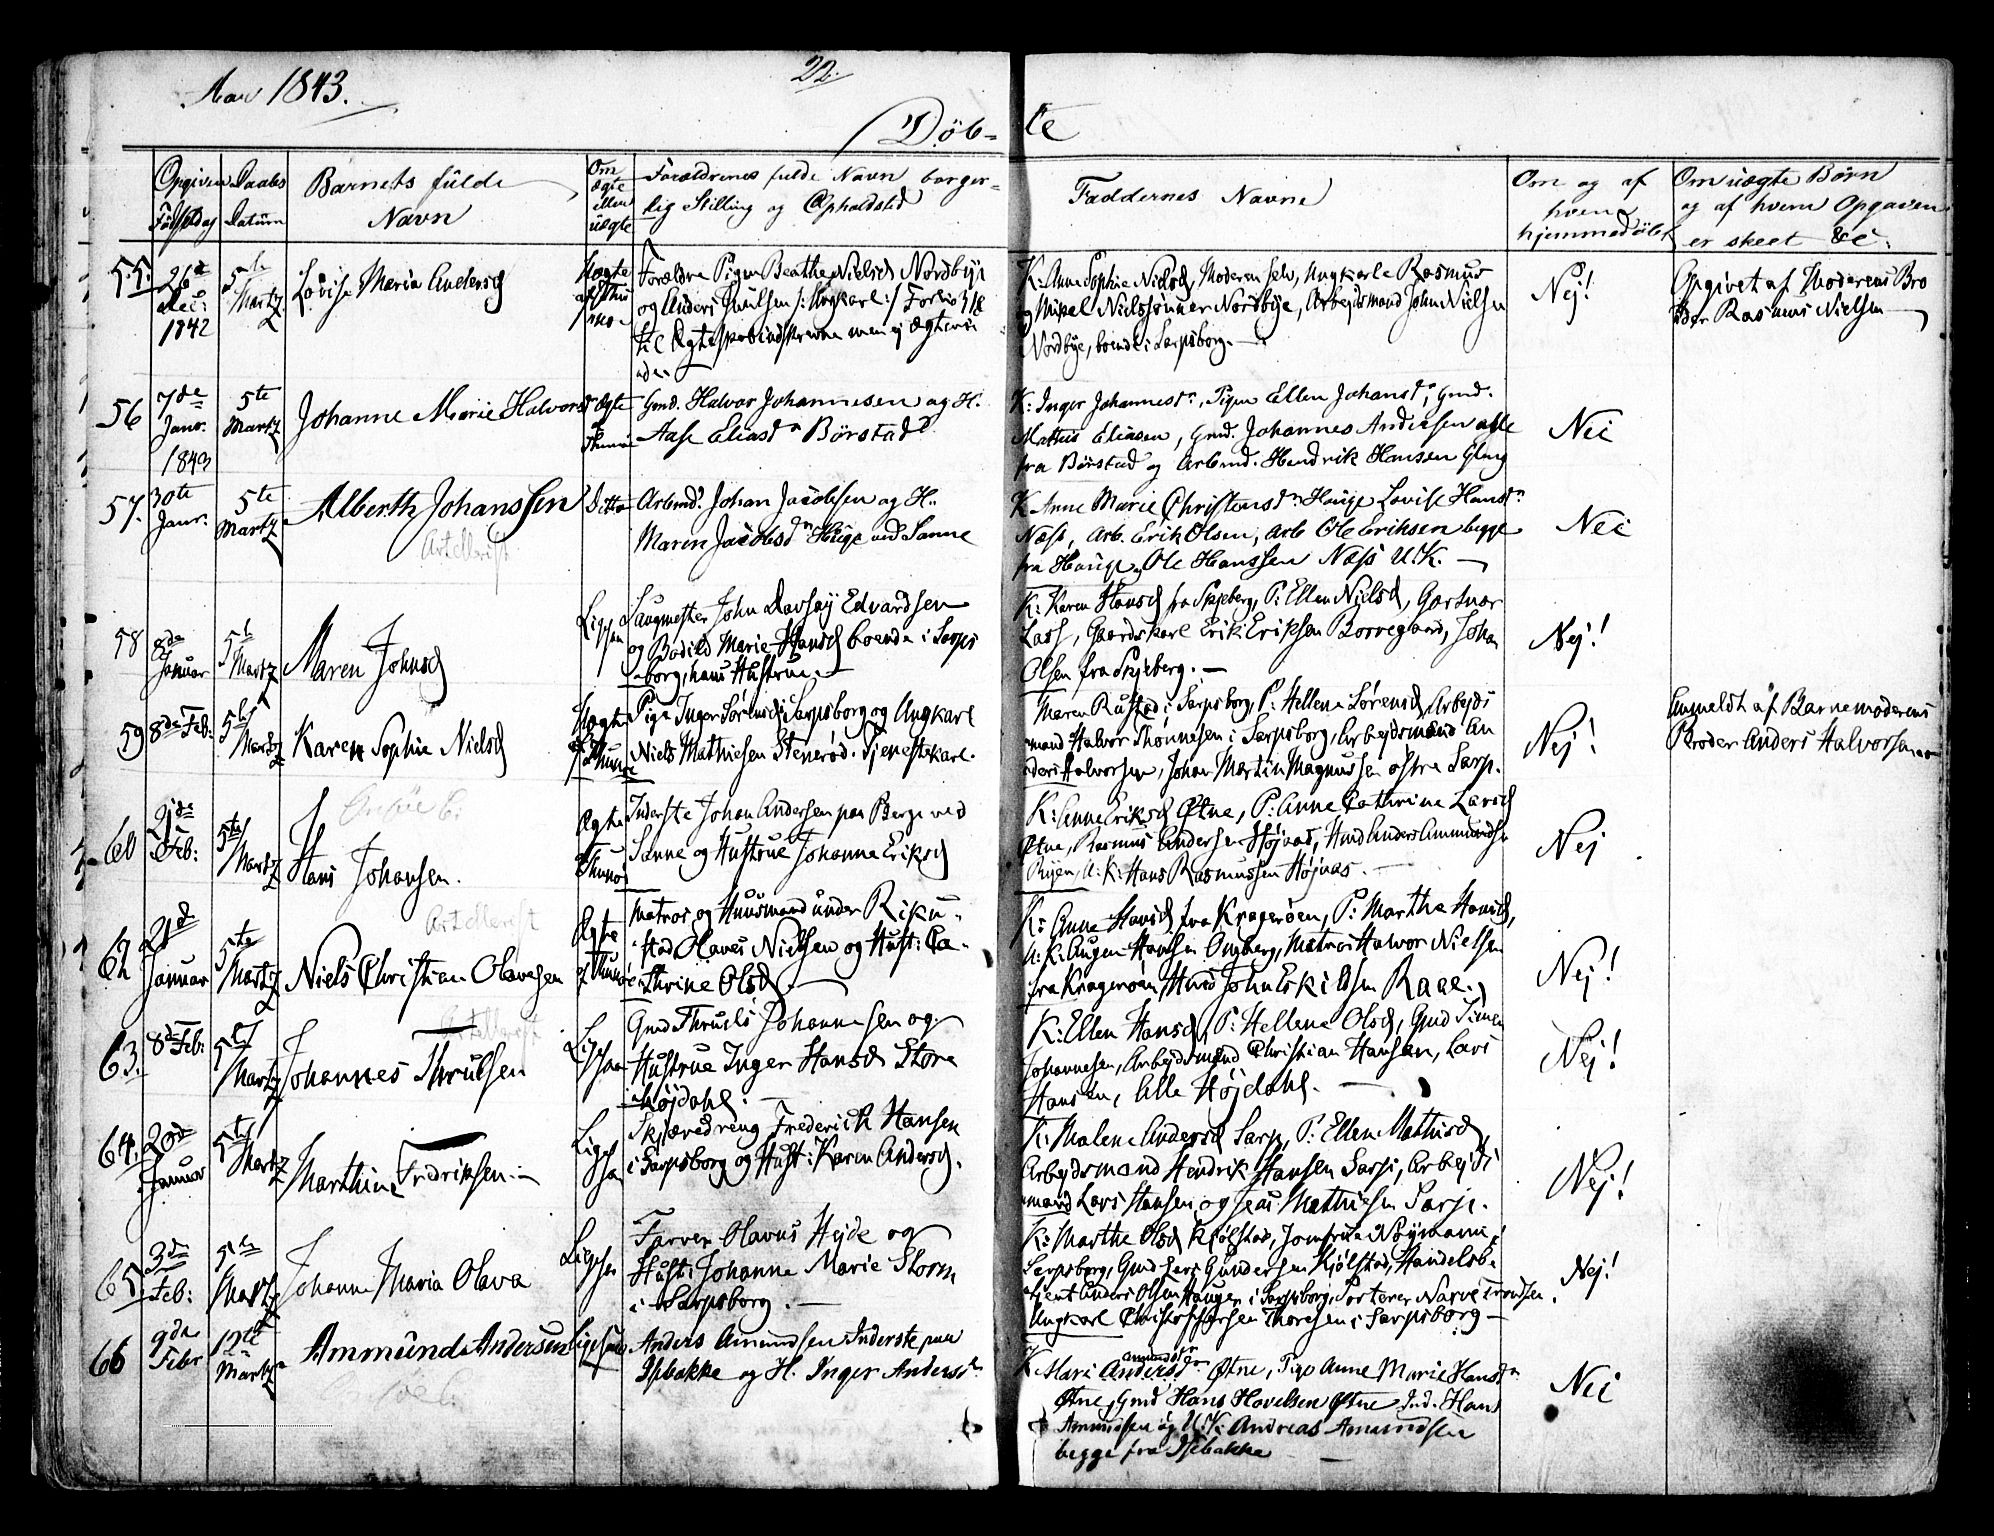 Aar 1843.
22.
Døb-te
Opgiven Fødselsdag
Daabs Datum
Barnets fulde Navn
Om ægte eller uægte
Forældrenes fulde Navn borger-
lig Stilling og Opholdsted
Faddernes Navne
Om og af hvem hjemmedøbt
Om uægte Børn
og af hvem Opgaven
er skeet &c.
55. 26d Dec: 1842
5te Martz
Lovise Maria Andersd
Uægte
Forældre Pigen Beathe Nielsd Nordbye
og Anders
K: Anne Sophie Nielsd, Moderen selv, Ungkarle Rasmus
og Mikel Nielssønner Nordbye, Arbejdsmand John Nielsen
Nordbye, boende i Sarpsborg.
Nej!
Opgivet af Moderens Bro
der Rasmus Nielsen
56 7de Janr. 1843
5te Martz
Johanne Marie Halvorsd
Ægte
Gmd. Halvor Johannesen og H.
Aase Eliasdr Børstad
K: Inger Johannesdr, Pigen Ellen Johansdr, Gmd.
Mathis Eliasen, Gmd. Johannes Andersen alle
fra Børstad og Arbmd. Hendrik Hansen Gleng
Nei
57. 30te Janr.
5te Martz
Alberth Johanssen
Ditto
Arbmd. Johan Jacobsen og H.
Maren Jacobsdr Hauge ved Sanne
K Anne Marie Christensdr Hauge Lovise Hansdr
Næss, Arb. Erik Olsen, Arb Ole Eriksen begge
fra Hauge og Ole Hanssen Næss U.K.
Nei
58 8de Januar
5te Martz
Maren Johnsd
Ligesaa
Saugmester John Edvardsen
og Bodild Marie Hansd boende i Sarps
borg, hans Hustrue
K: Karen Hansd fra Skjeberg, P: Ellen Nielsd, Gartner
Lass, Gaardskarl Erik Eriksen Borregaard, Johan
Olsen fra Skjeberg.
Nej!
59 8de Feb.
5te Martz
Karen Sophie Nielsd
Uægte
Pige Inger Sørensd i Sarpsborg og Ungkarl
Niels Mathiesen Stenerød. Tjenestekarl.
Maren Rustad i Sarpsborg, P: Hellene Sørensd, Arbejds
mand Halvor Thønnesen i Sarpsborg, Arbejdsmand An
ders Halvorsen, Johan Martin Magnussen østre Sarp.
Nej!
Anmeldt af Barnemoderens
Broder Anders Halvorsen
60 2de Feb:
5te Martz
Hans Johansen.
Ægte
Inderste Johan Andersen paa Berge ved
Sanne og Hustrue Johanne Eriksd
K: Anne Eriksd Østne, P: Anne Cathrine Larsd
Østne, Rasmus Andersen Højnæs, Husmd Anders Ammundsen
U: K: Hans Rasmussen Højnæs.
Nej
62 2d Januar
5te Martz
Niels Christian Olavesen
Ægte
Matros og Huusmand under Riku-
stad Olaves Nielsen og Hust: Ca-
thrine Olsd.
K: Anne Hansd fra Kragerøen, P: Marthe Hansd,
U: K: Hansen Omberg, Matros Halvor Nielsen
fra Kragerøen, Husmd John Eskildsen Raae.
Nej!
63. 8de Feb:
5te Martz
Johannes Thrulsen
Ligesaa
Gmd Thruels Johannesen og
Hustrue Inger Hansd Store
Højdahl.
K: Ellen Hansd, P: Hellene Olsd, Gmd Simen
Johannesen, Arbejdsmand Christian Hansen, Lars
Hansen, Alle Højdahl.
Nej!
64. 20d Januar
5te Martz
Marthine Fredriksen.
Ligesaa
Skjæredreng Frederick Hansen
i Sarpsborg og Hust: Karen Andersd.
K: Malene Andersd Sarp, P: Ellen Mathisd,
Arbejdsmand Hendrik Hansen Sarp, Arbejds
mand Lars Hansen og Jens Mathiesen Sarp.
Nej!
65. 3d Feb:
5te Martz
Johanne Maria Olava
Ligesaa
Farver Olavus Hejde og
Hust: Johanne Marie Storm
i Sarpsborg.
K: Marthe Olsd Kjølstad, Jomfrue Nøjmann i
Sarpsborg, Gmd Lars Gundersen Kjølstad, Handelsbe
tjent Anders Olsen Haugen i Sarpsborg, Sorterer Narve Trondsen
Ungkarl Christoffersen Thoresen i Sarpsborg
Nej!
66 9de Febr
12te Martz
Ammund Andersen
Ligesaa
Anders Amundsen Inderste paa
Isebakke og H. Inger Andersdr
K. Mari Amundsdr Andersdr Østne, Pige Anne Marie Hansdr
Østne, Gmd Hans Hovelsen Østne Ind. Hans
Ammundsen og U.K: Andreas Amundsen
begge fra Isebakke
Nei